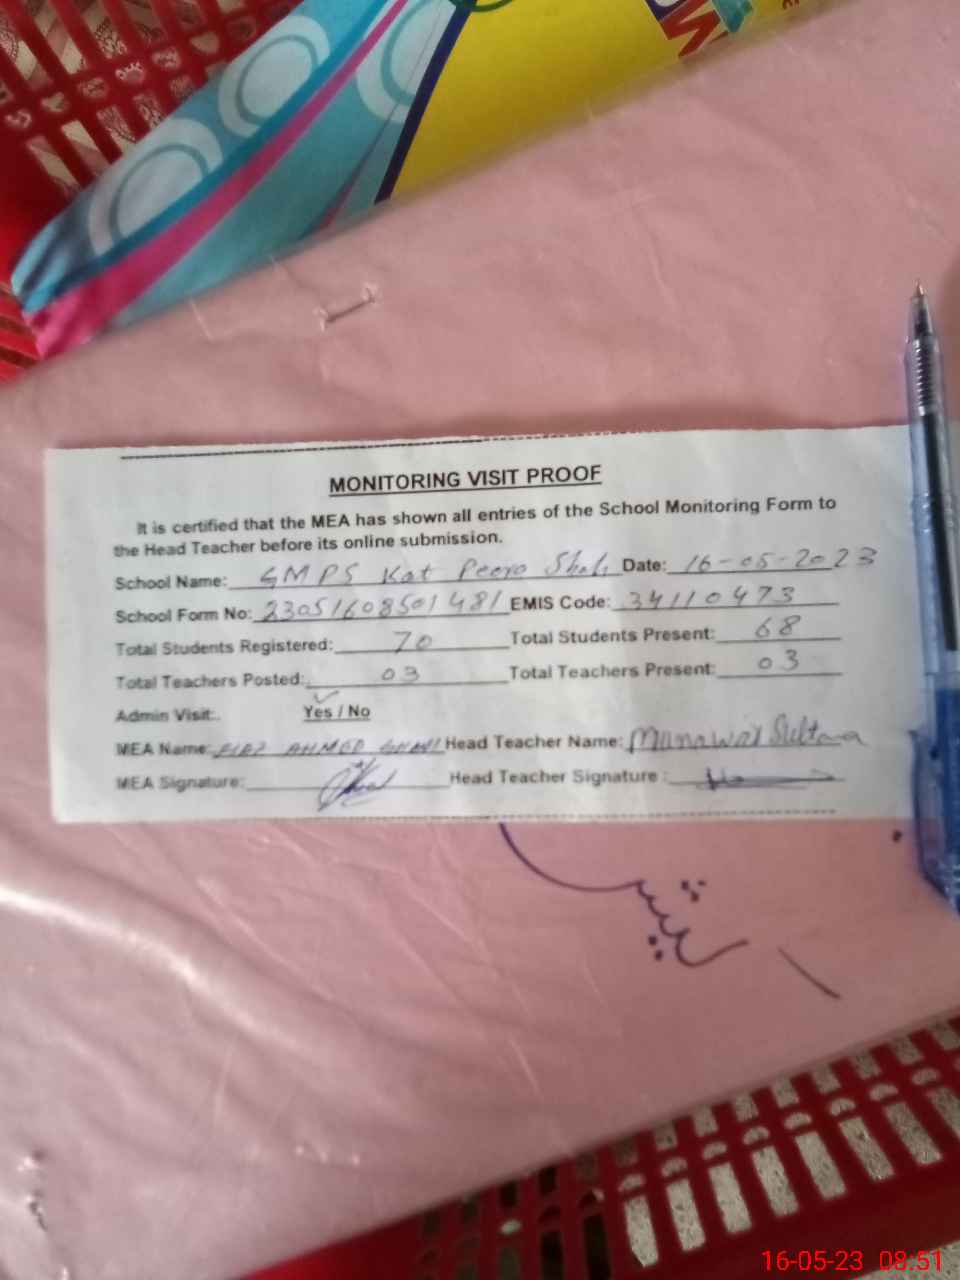 MONITORING VISIT PROOF
It is certified that the MEA has shown all entries of the School Monitoring Form to
the Head Teacher before its online submission.
School Name: GMPS Kot Peero Shah Date: 16-05-2023
School Form No: 23051608501481 EMIS Code: 34110473
Total Students Registered: 70 Total Students Present: 68
Total Teachers Posted: 03 Total Teachers Present: 03
Admin Visit:. Yes / No
MEA Name: AHMED GHANI Head Teacher Name: Munawar Sultana
MEA Signature: Head Teacher Signature :
16-05-23 08:51